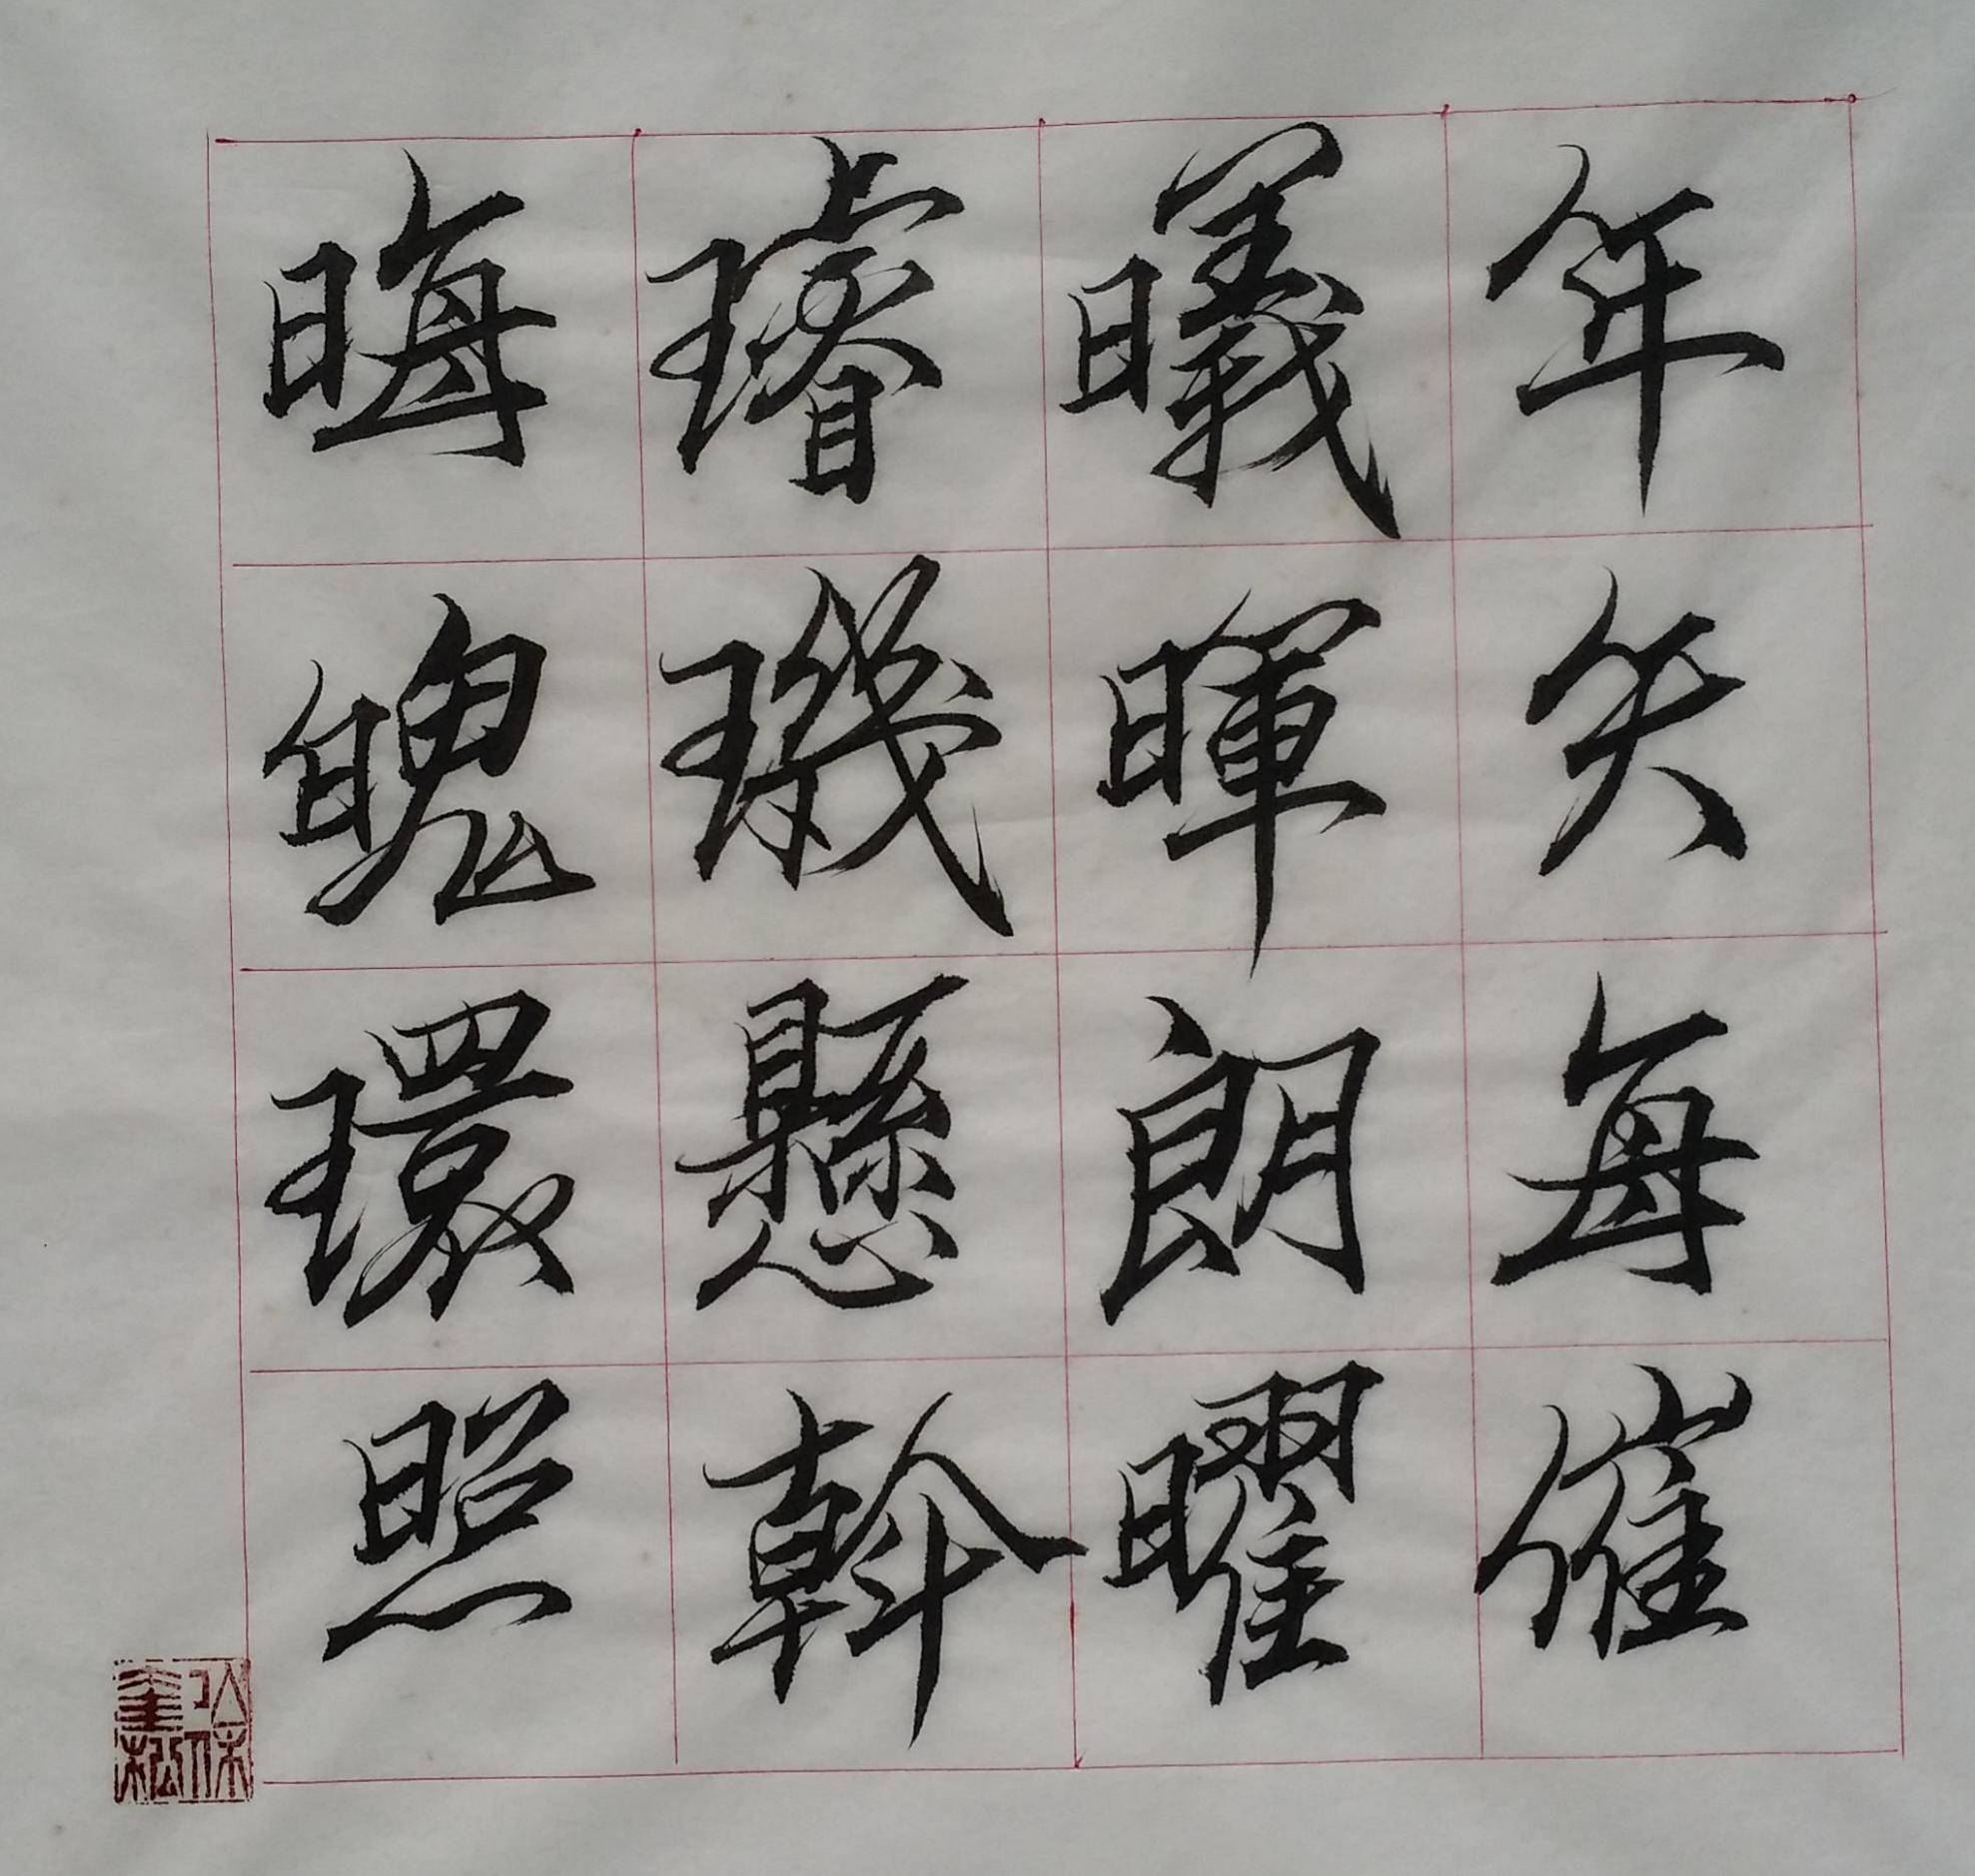 年矢每催
曦暉朗曜
璿璣懸斡
晦魄環照